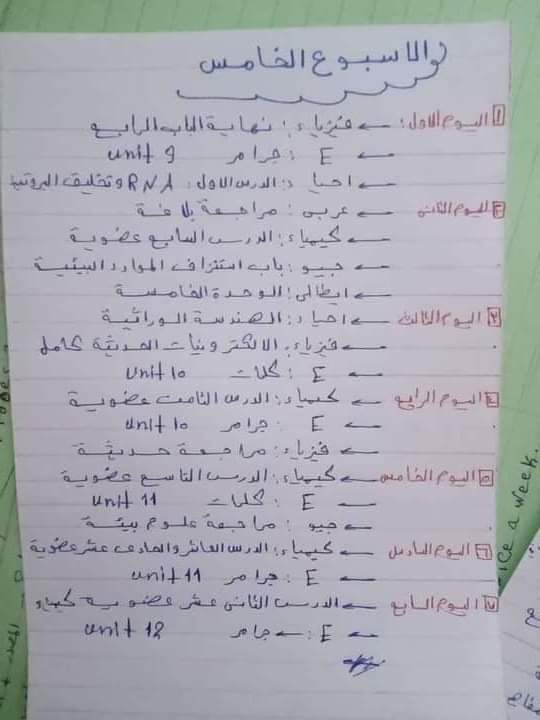 والاسبوع الخامس
1 اليوم الاول: ← فيزياء: نهاية الباب الرابع
← E : جرامر unit 9
← احياء: الدرس الاول: RNA وتخليق البروتين
2 اليوم الثانى ← عربى: مراجعة بلاغة
← كيمياء: الدرس السابع عضوية
← جيو: باب استنزاف الموارد البيئية
← ايطالى: الوحدة الخامسة
3 اليوم الثالث ← احياء: الهندسة الوراثية
← فيزياء: الالكترونيات الحديثة كامل
← E : كلمات unit 10
4 اليوم الرابع ← كيمياء: الدرس الثامن عضوية
← E : جرامر unit 10
← فيزياء: مراجعة حديثة
5 اليوم الخامس ← كيمياء: الدرس التاسع عضوية
← E : كلمات unit 11
← جيو: مراجعة علوم بيئة
6 اليوم السادس ← كيمياء: الدرس العاشر والحادى عشر عضوية
← E : جرامر unit 11
7 اليوم السابع ← الدرس الثانى عشر عضوية كيمياء
← E : ← جرامر unit 12
ice a week.